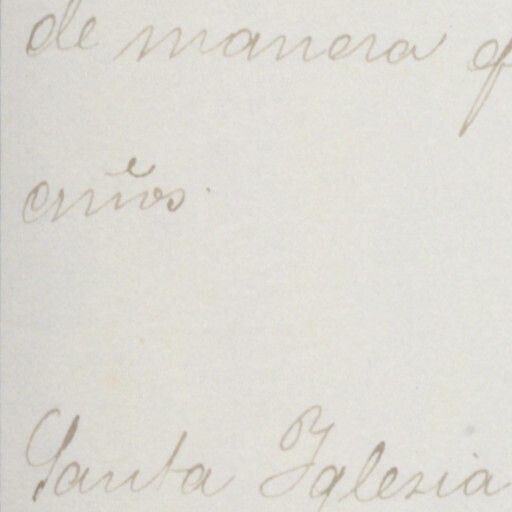 de manera q
años.
Santa Iglesia